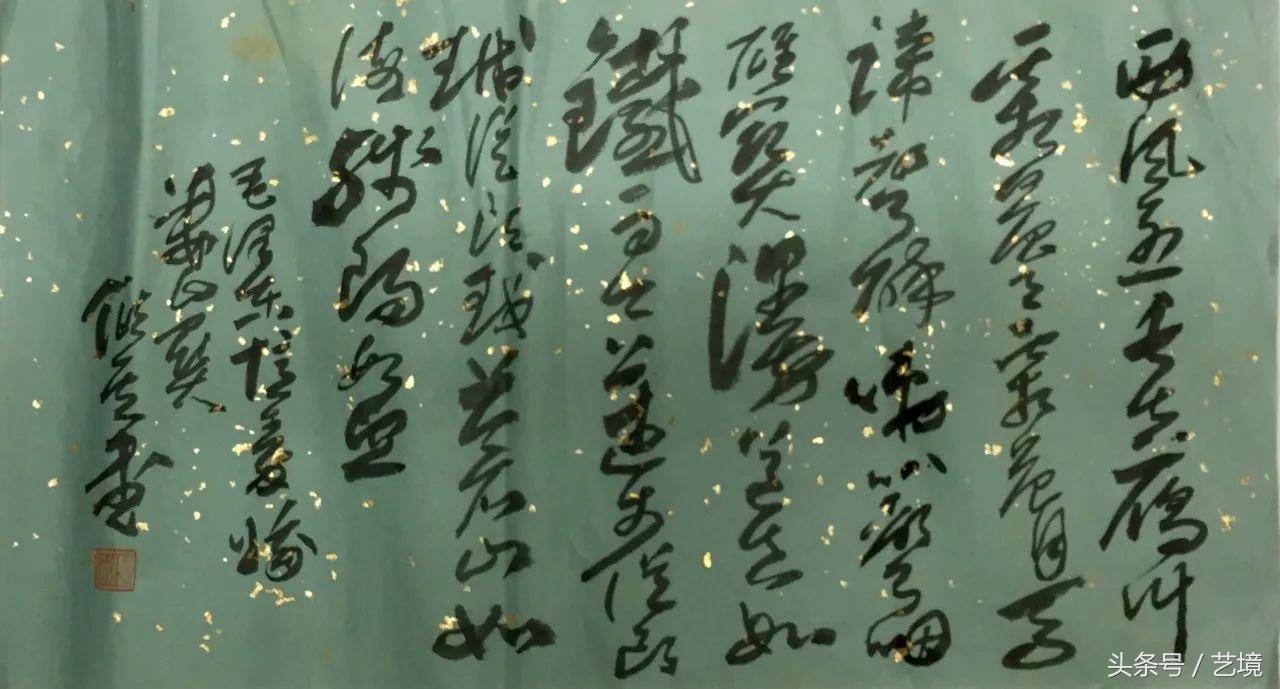 西风烈长空雁叫
霜晨月霜晨月马
蹄声碎喇叭声咽
雄关漫道真如
铁而今迈步从头
越从头越苍山如
海残阳如血
毛泽东忆秦娥
娄山关
书
头条号 / 艺境